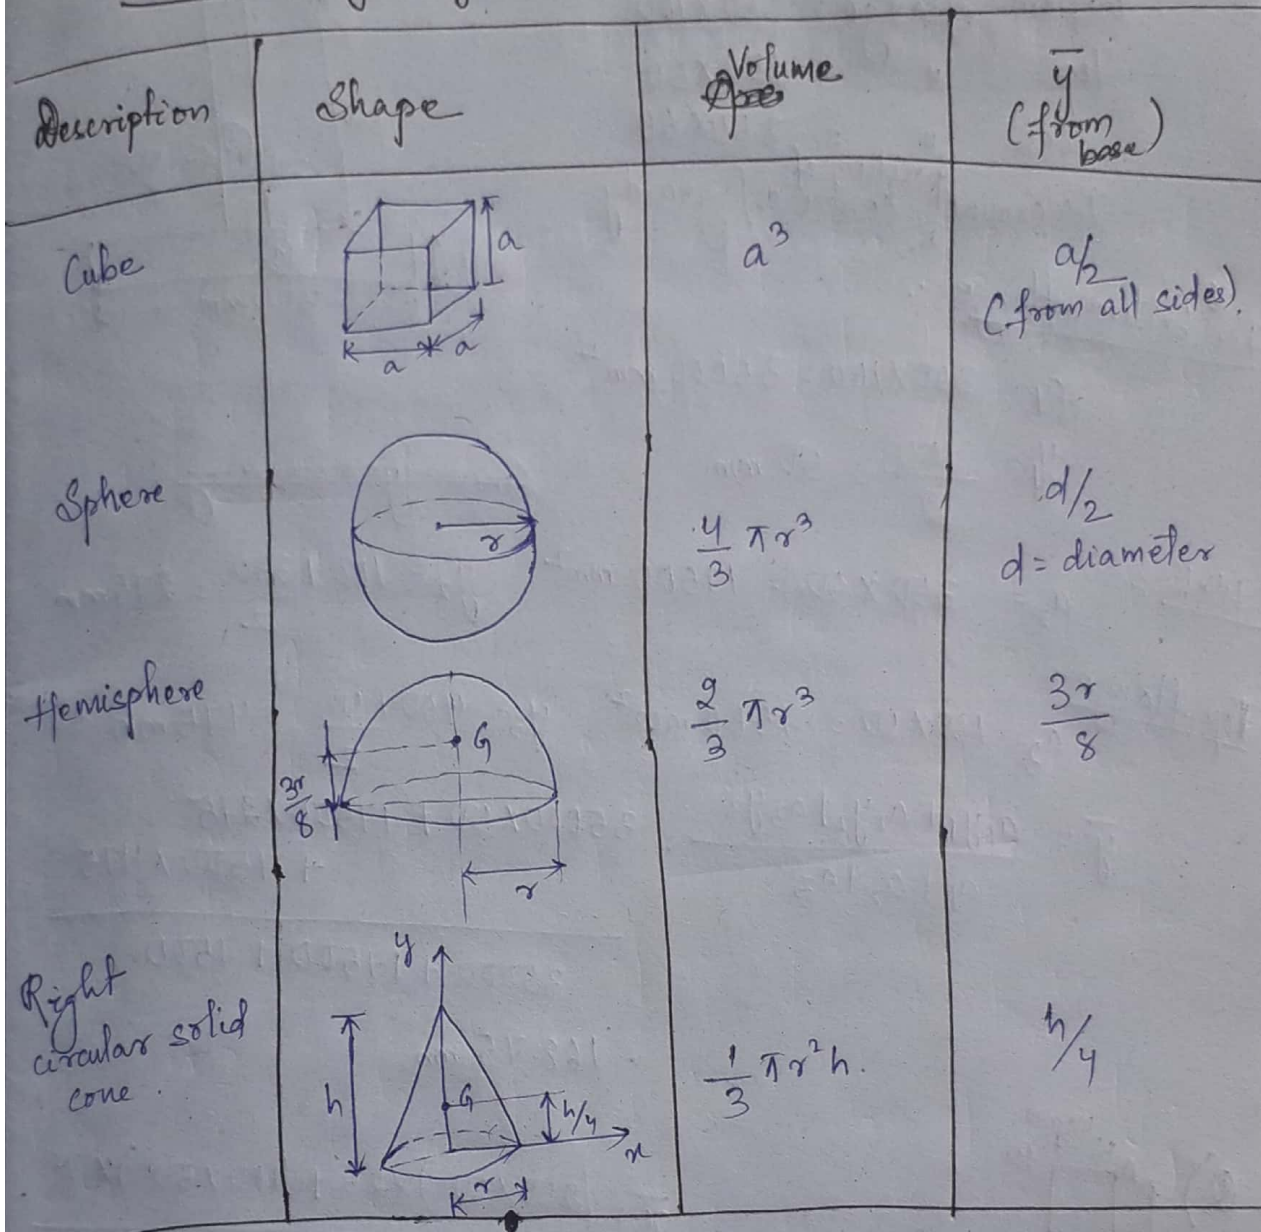 Description
Shape
Volume
ȳ
(from
base)
Cube
a
a
a
a³
a/2
(from all sides).
Sphere
r
4/3 πr³
d/2
d = diameter
Hemisphere
G
3r/8
r
2/3 πr³
3r/8
Right
circular solid
cone.
y
h
G
h/4
x
r
1/3 πr²h.
h/4